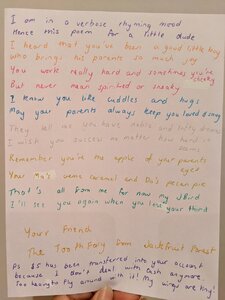 I am in a verbose rhyming mood
Hence this poem for a little dude
I heard that you've been a good little boy
who brings his parents so much joy
You work really hard and sometimes you're
cheeky
But never mean spirited or sneaky
I know you like cuddles and hugs
May your parents always keep you loved &
They tell me you have noble and lofty dreams
I wish you success no matter how hard it
seems
Remember you're the apple of your parents
eyes
Your Ma's creme caramel and Da's pecan pie
That's all from me for now my JBird
I'll see you again when you lose your third
Your Friend
The Tooth Fairy from Jackfruit Forest
PS $5 has been transferred into your account
because I don't deal with cash anymore
Too heavy to fly around with it! My wings are tiny!